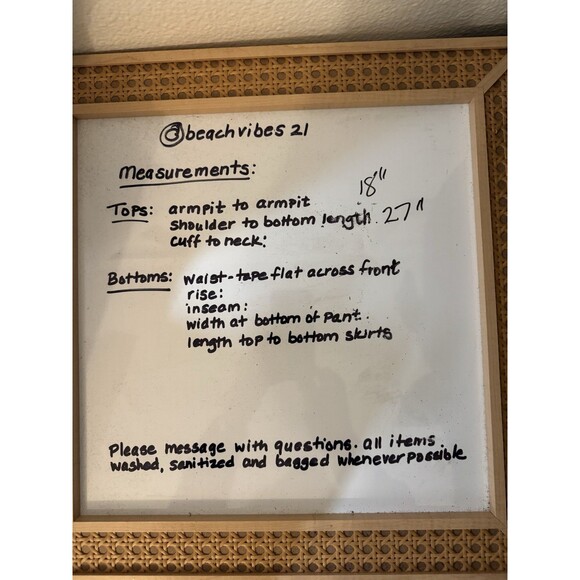 @beachvibes21
Measurements:
18"
Tops: armpit to armpit
shoulder to bottom length. 27"
cuff to neck:
Bottoms: waist-tape flat across front
rise:
inseam:
width at bottom of pant.
length top to bottom skirts
Please message with questions. all items
washed, sanitized and bagged whenever possible